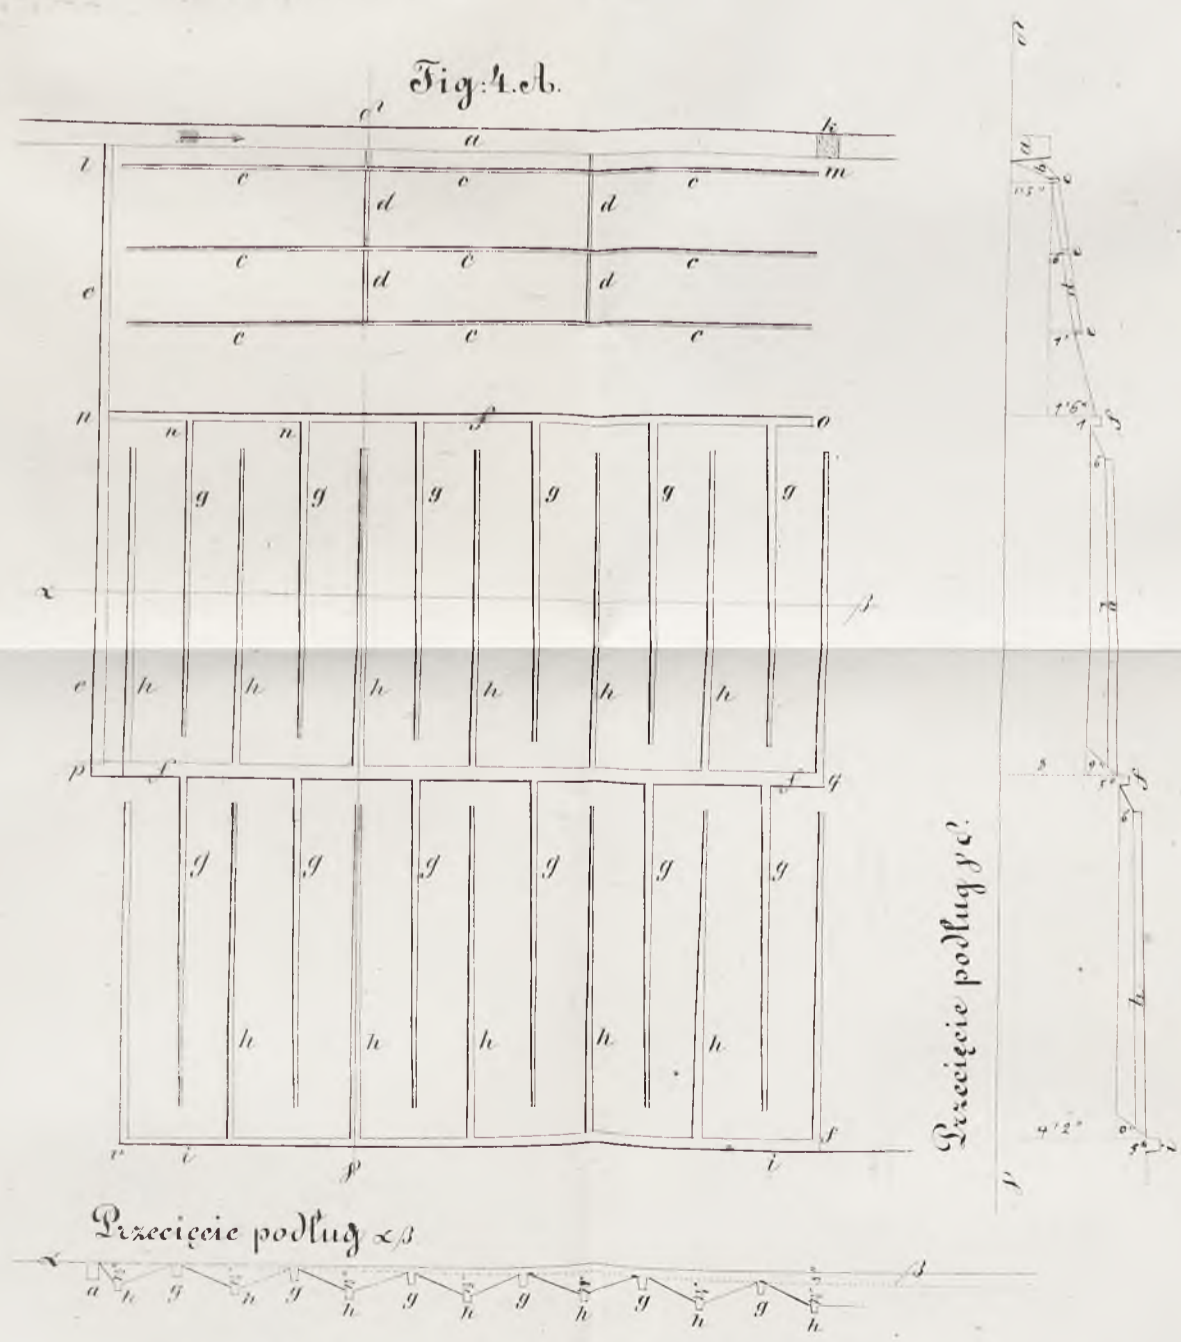 Fig: 4. A.
δ
a
k
l
c c c m
d d
c c c
d d
e
c c c
p n n f o
g g g g g g
α β
e h h h h h h
p f f q
g g g g g g
h h h h h
r i γ i s
Przecięcie podług α β
α β
a h g h g h g h g h g h g h
Przecięcie podług γ δ.
δ
a
b
c
1'5"
c
6"
d
1' c
1'6" f
6"
h
3 9" f
5"
6"
h
4'2" 6"
5" i
γ